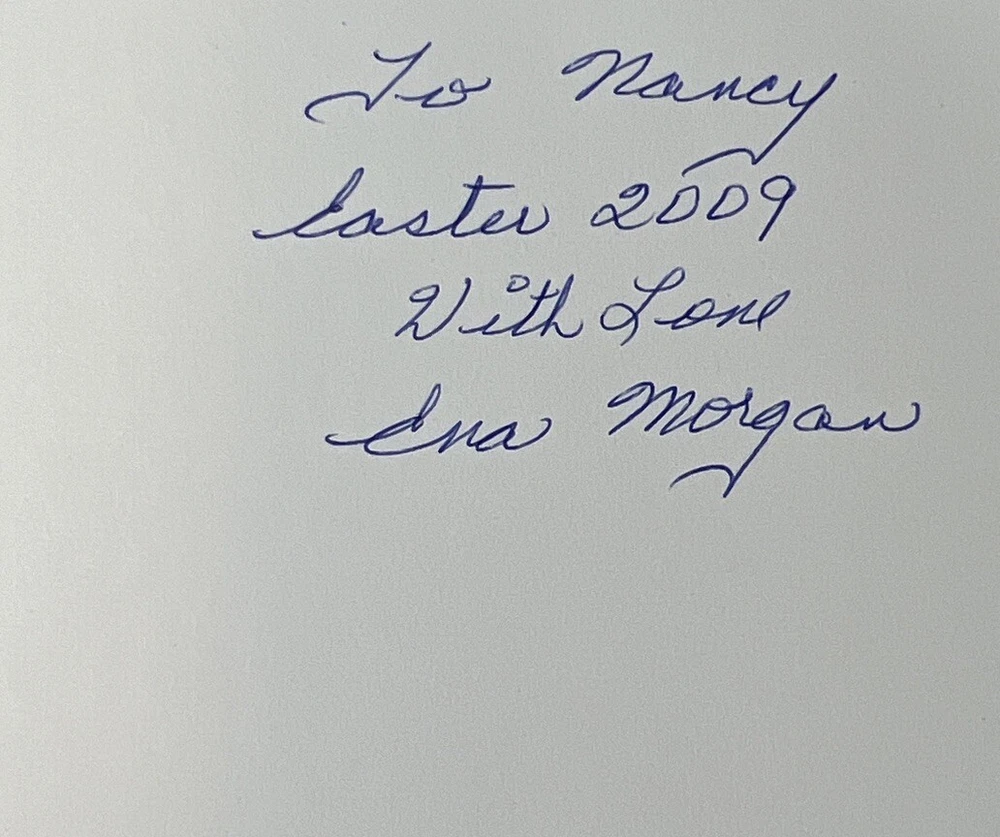 To Nancy
Easter 2009
With Love
Ena Morgan